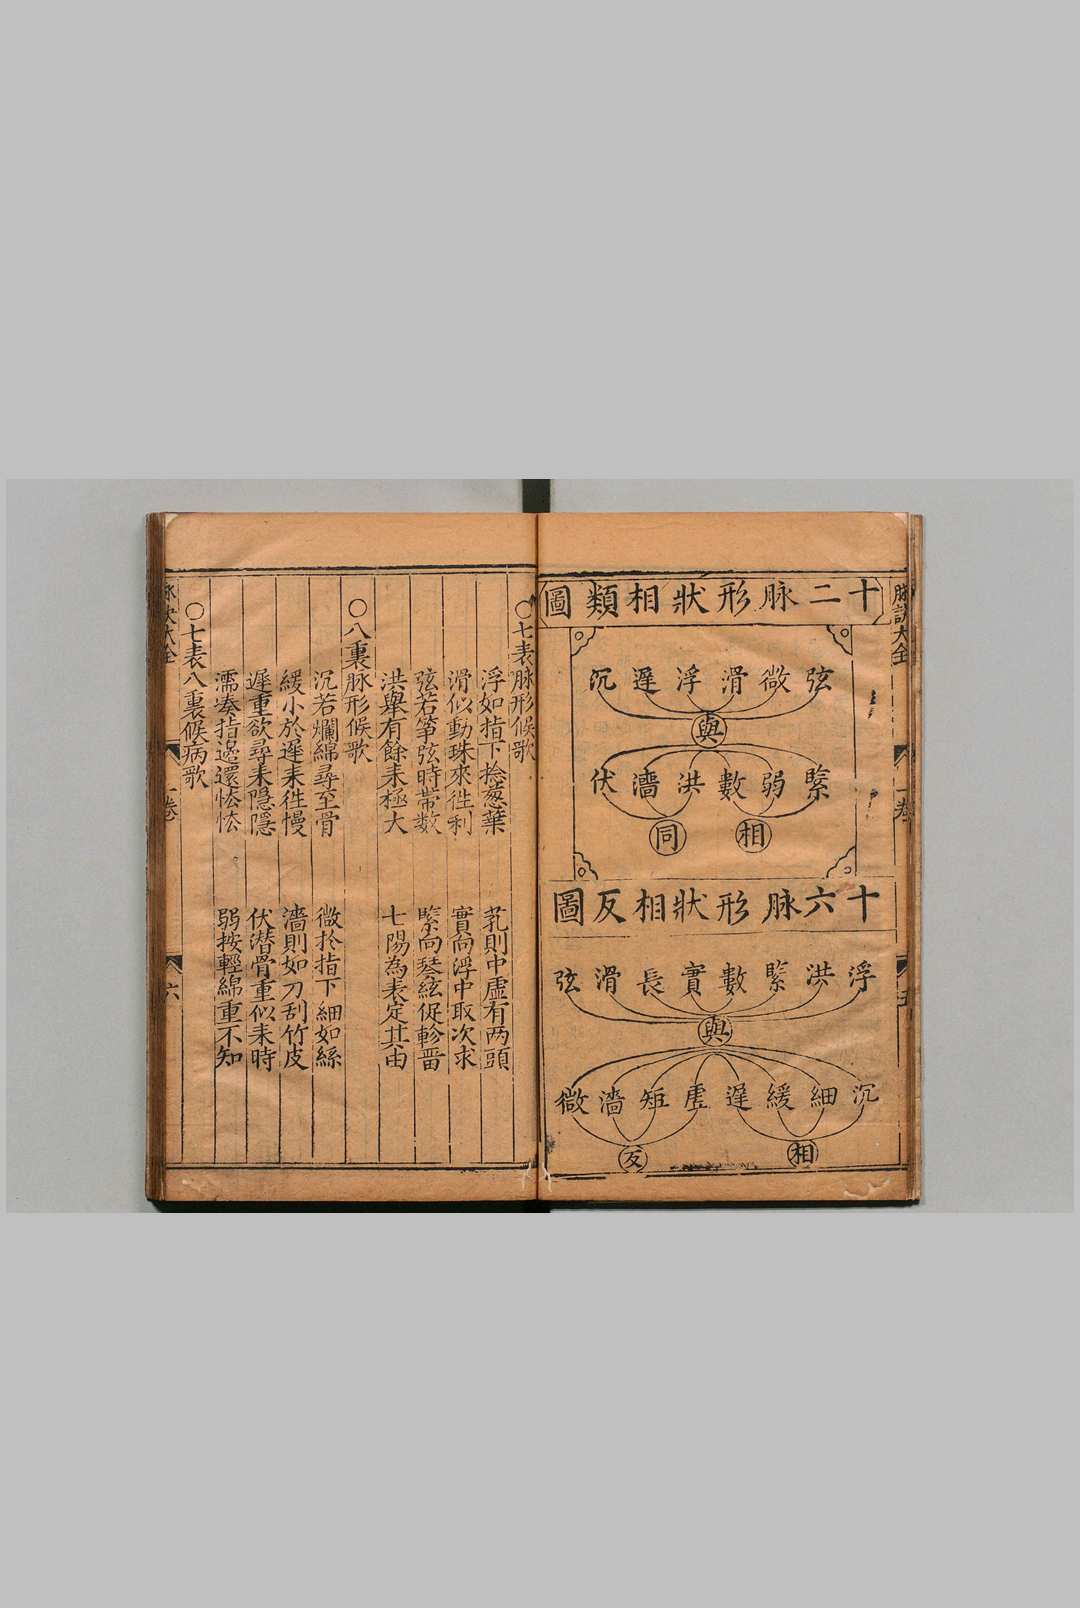 脉訣大全
一卷
五
十二脉形狀相類圖
弦微滑浮遲沉
與
緊弱數洪濇伏
相同
十六脉形狀相反圖
浮洪緊數實長滑弦
與
沉細緩遲虛短濇微
相反
○七表脉形候歌
浮如指下捻葱葉
芤則中虛有两頭
滑似動珠來徃利
實向浮中取次求
弦若箏弦時帶數
緊向琴絃促軫
洪舉有餘耒極大
七陽為表定其由
○八裏脉形候歌
沉若爛綿尋至骨
微扵指下細如絲
緩小於遲耒徃慢
濇則如刀刮竹皮
遲重欲尋耒隱隱
伏潜骨重似耒時
濡湊指邊還怯怯
弱按輕綿重不知
○七表八裏候病歌
脉訣大全
一卷
六